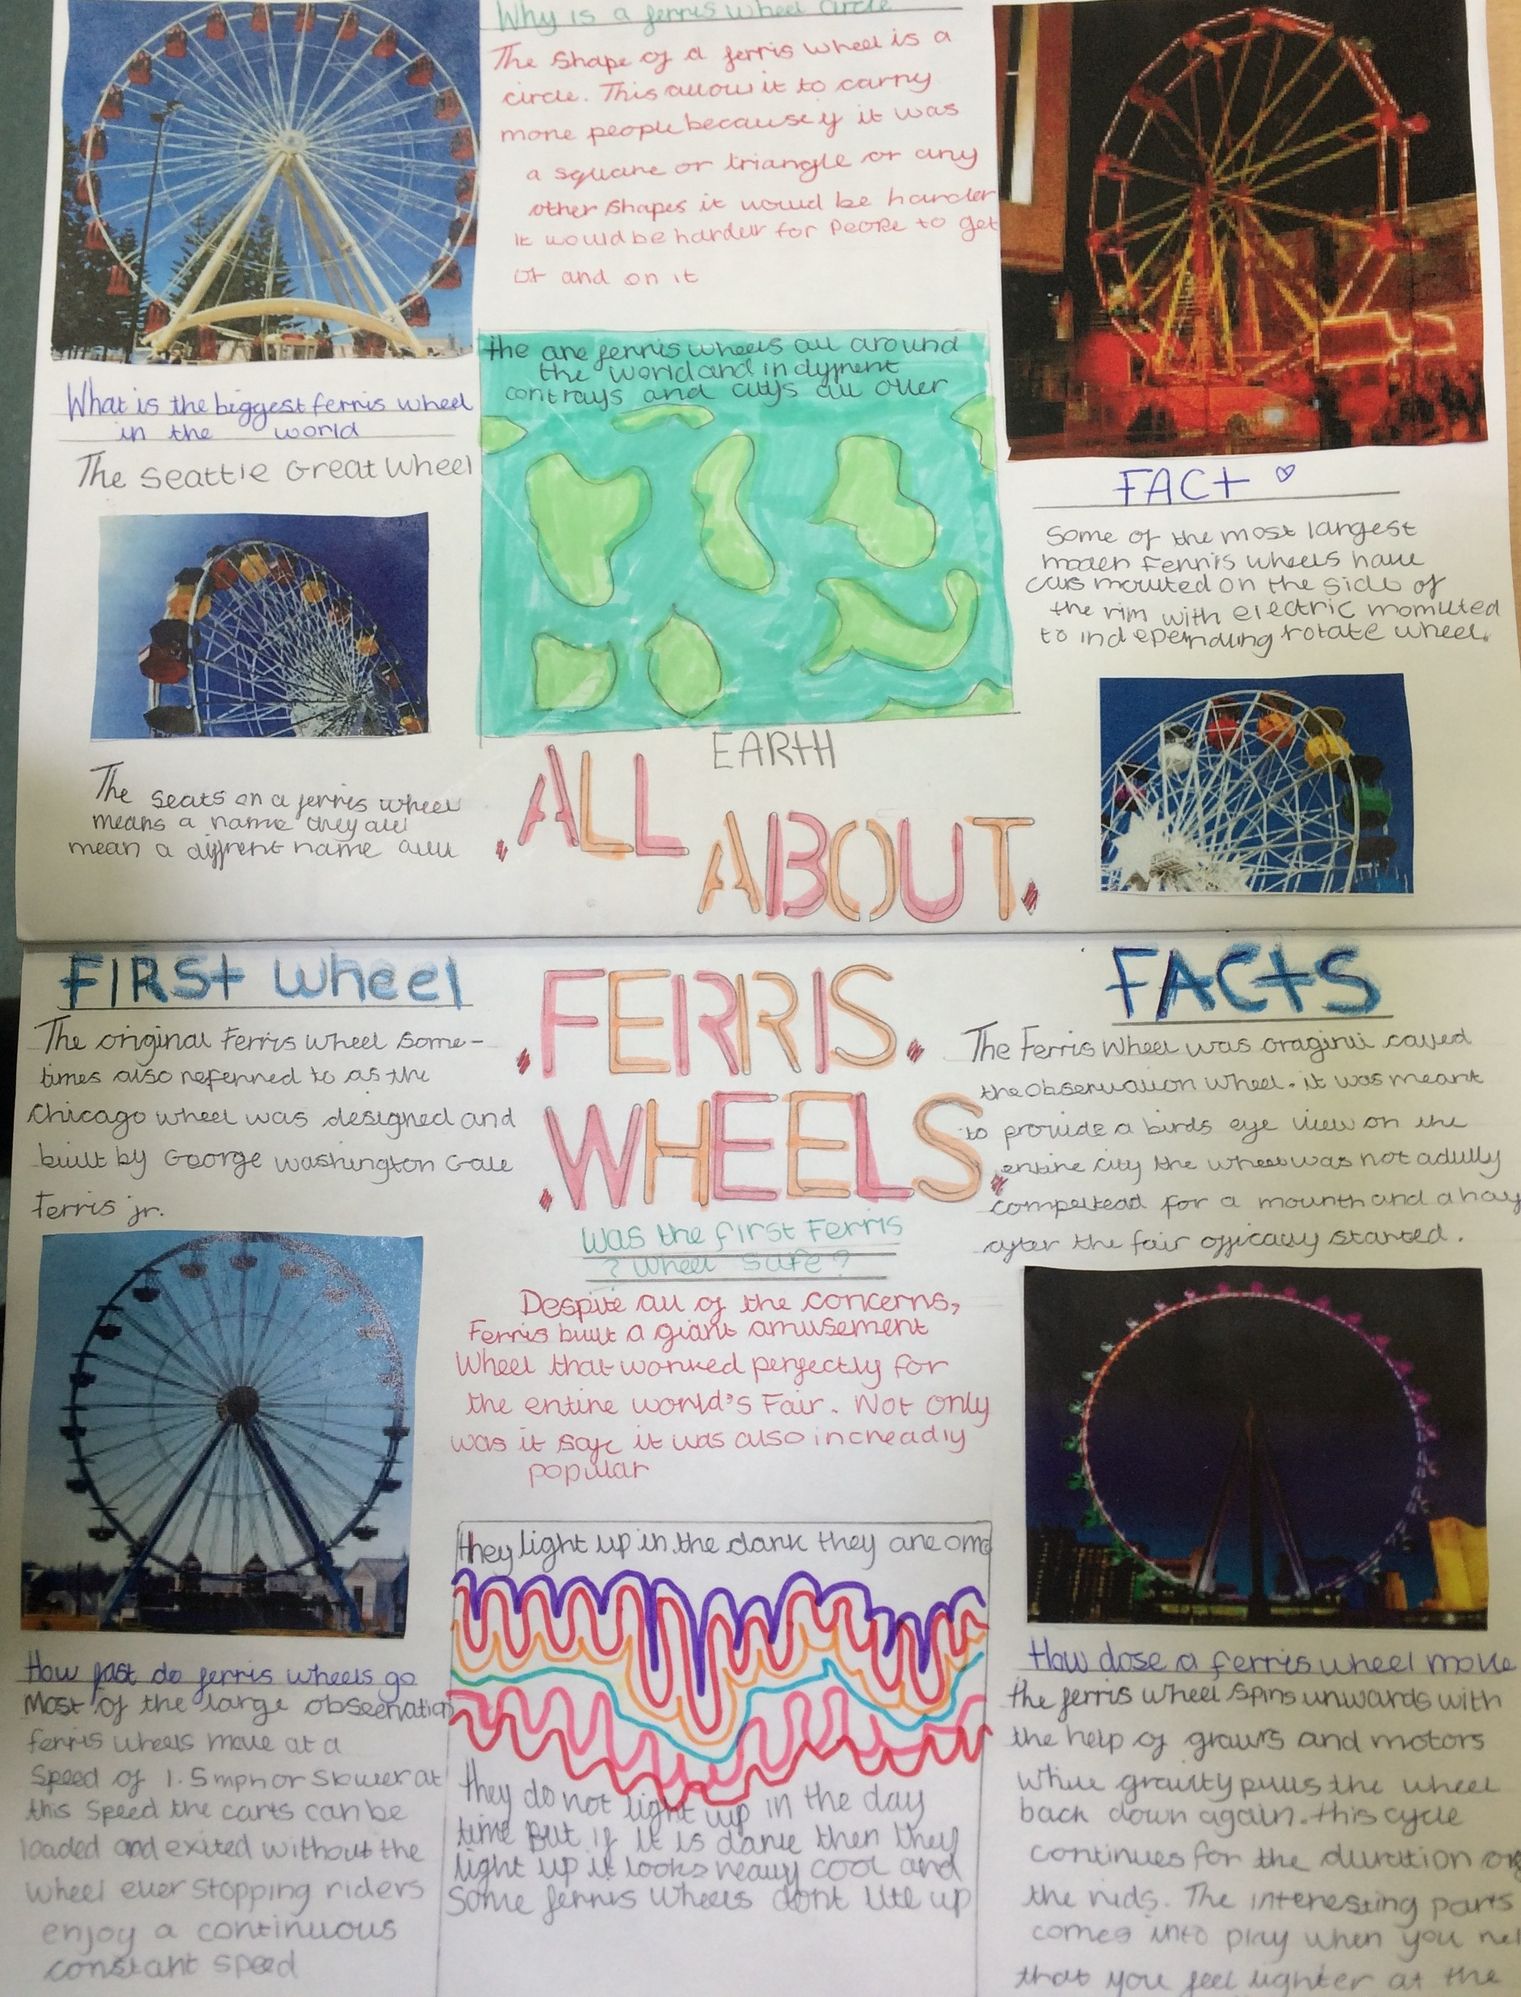 Why is a ferris wheel circle
The shape of a ferris wheel is a
circle. This allow it to carry
more people because if it was
a square or triangle or any
other shapes it would be harder
it would be harder for people to get
of and on it
What is the biggest ferris wheel
in the world
The Seattle Great Wheel
The seats on a ferris wheel
means a name they all
mean a diffrent name
the are ferris wheels all around
the world and in diffrent
contrays and citys all over
EARTH
FACT ♡
Some of the most largest
ferris wheels have
cars mouted on the side of
the rim with electric
to rotate wheel.
ALL
ABOUT
FERRIS
WHEELS
FIRST wheel
The original Ferris Wheel Some-
times also referred to as the
Chicago wheel was designed and
built by George Washington Gale
Ferris jr.
How fast do ferris wheels go
Most of the large observation
ferris wheels move at a
speed of 1.5mph or slower at
this speed the carts can be
loaded and exited without the
wheel ever stopping riders
enjoy a continuous
constant speed
Was the first Ferris
? Wheel safe?
Despite all of the concerns,
Ferris built a giant amusement
Wheel that worked perfectly for
the entire world's Fair. Not only
was it safe it was also increadly
popular
they light up in the dark they are
they do not light up in the day
time But if it is darke then they
light up it looks really cool and
Some ferris wheels dont lite up
FACTS
The Ferris Wheel was called
the observation wheel. it was meant
to provide a birds eye view on the
entire city the wheel was not
for a mounth and a
after the fair officaly started.
How dose a ferris wheel move
the ferris wheel spins unwards with
the help of and motors
while gravity pulls the wheel
back down again. this cycle
continues for the duration
the rids. The interesting parts
comes into play when you
that you feel lighter at the